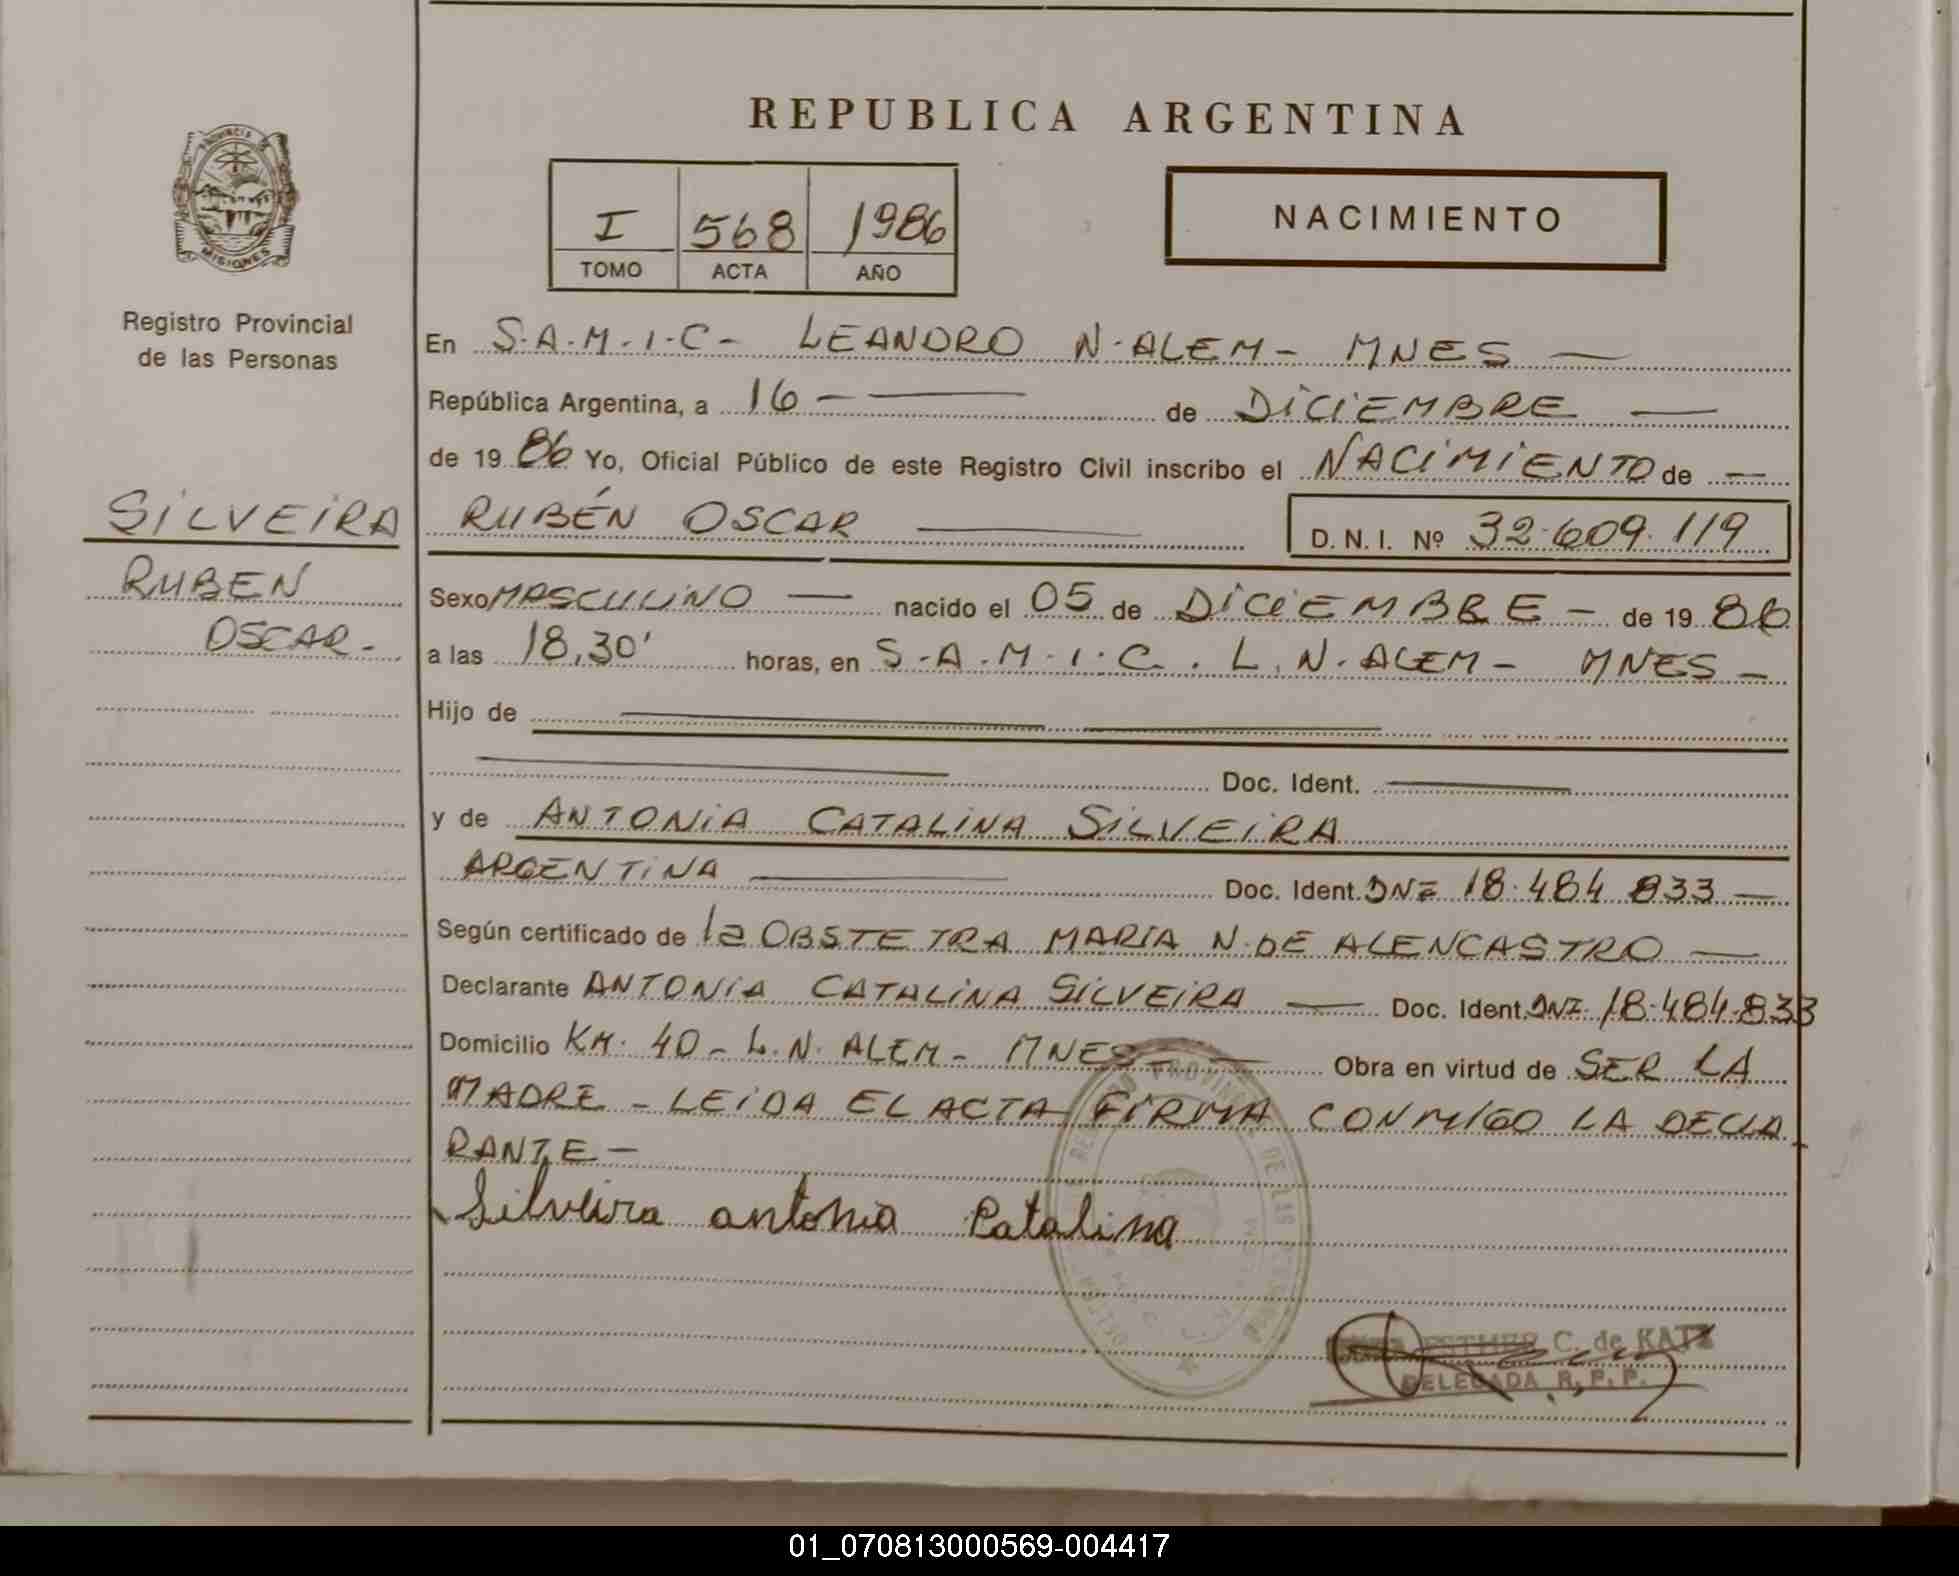 REPUBLICA ARGENTINA
PROVINCIA DE
MISIONES
I 568 1986
TOMO ACTA AÑO
NACIMIENTO
Registro Provincial
de las Personas
En S.A.M.I.C- LEANDRO N.ALEM- MNES —
República Argentina, a 16 — — de DICIEMBRE —
de 1986 Yo, Oficial Público de este Registro Civil inscribo el NACIMIENTO de —
SILVEIRA RUBÉN OSCAR — D. N. I. Nº 32.609.119
RUBEN
OSCAR-
Sexo MASCULINO — nacido el 05 de DICIEMBRE — de 1986
a las 18,30' horas, en S.A.M.I.C. L.N.ALEM- MNES-
Hijo de — —
— Doc. Ident. —
y de ANTONIA CATALINA SILVEIRA
ARGENTINA — Doc. Ident. DNI 18.484.833 —
Según certificado de la OBSTETRA MARIA N. DE ALENCASTRO —
Declarante ANTONIA CATALINA SILVEIRA — Doc. Ident. DNI 18.484.833
Domicilio KM. 40- L.N. ALEM- MNES- — Obra en virtud de SER LA
MADRE - LEIDA EL ACTA FIRMA CONMIGO LA DECLA
RANTE -
Silveira antonia Catalina
ESTHER C. de KATZ
DELEGADA R.P.P.
01_070813000569-004417